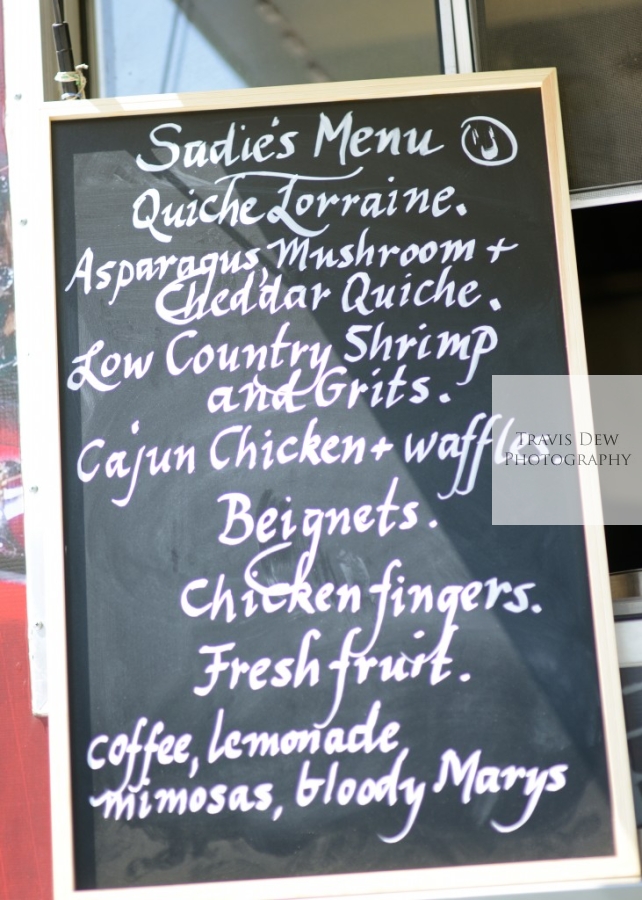 Sadie's Menu
Quiche Lorraine.
Asparagus, Mushroom +
Cheddar Quiche.
Low Country Shrimp
and Grits.
Cajun Chicken + waffles
Travis Dew
Photography
Beignets.
Chicken fingers.
Fresh fruit.
coffee, lemonade
mimosas, bloody Marys